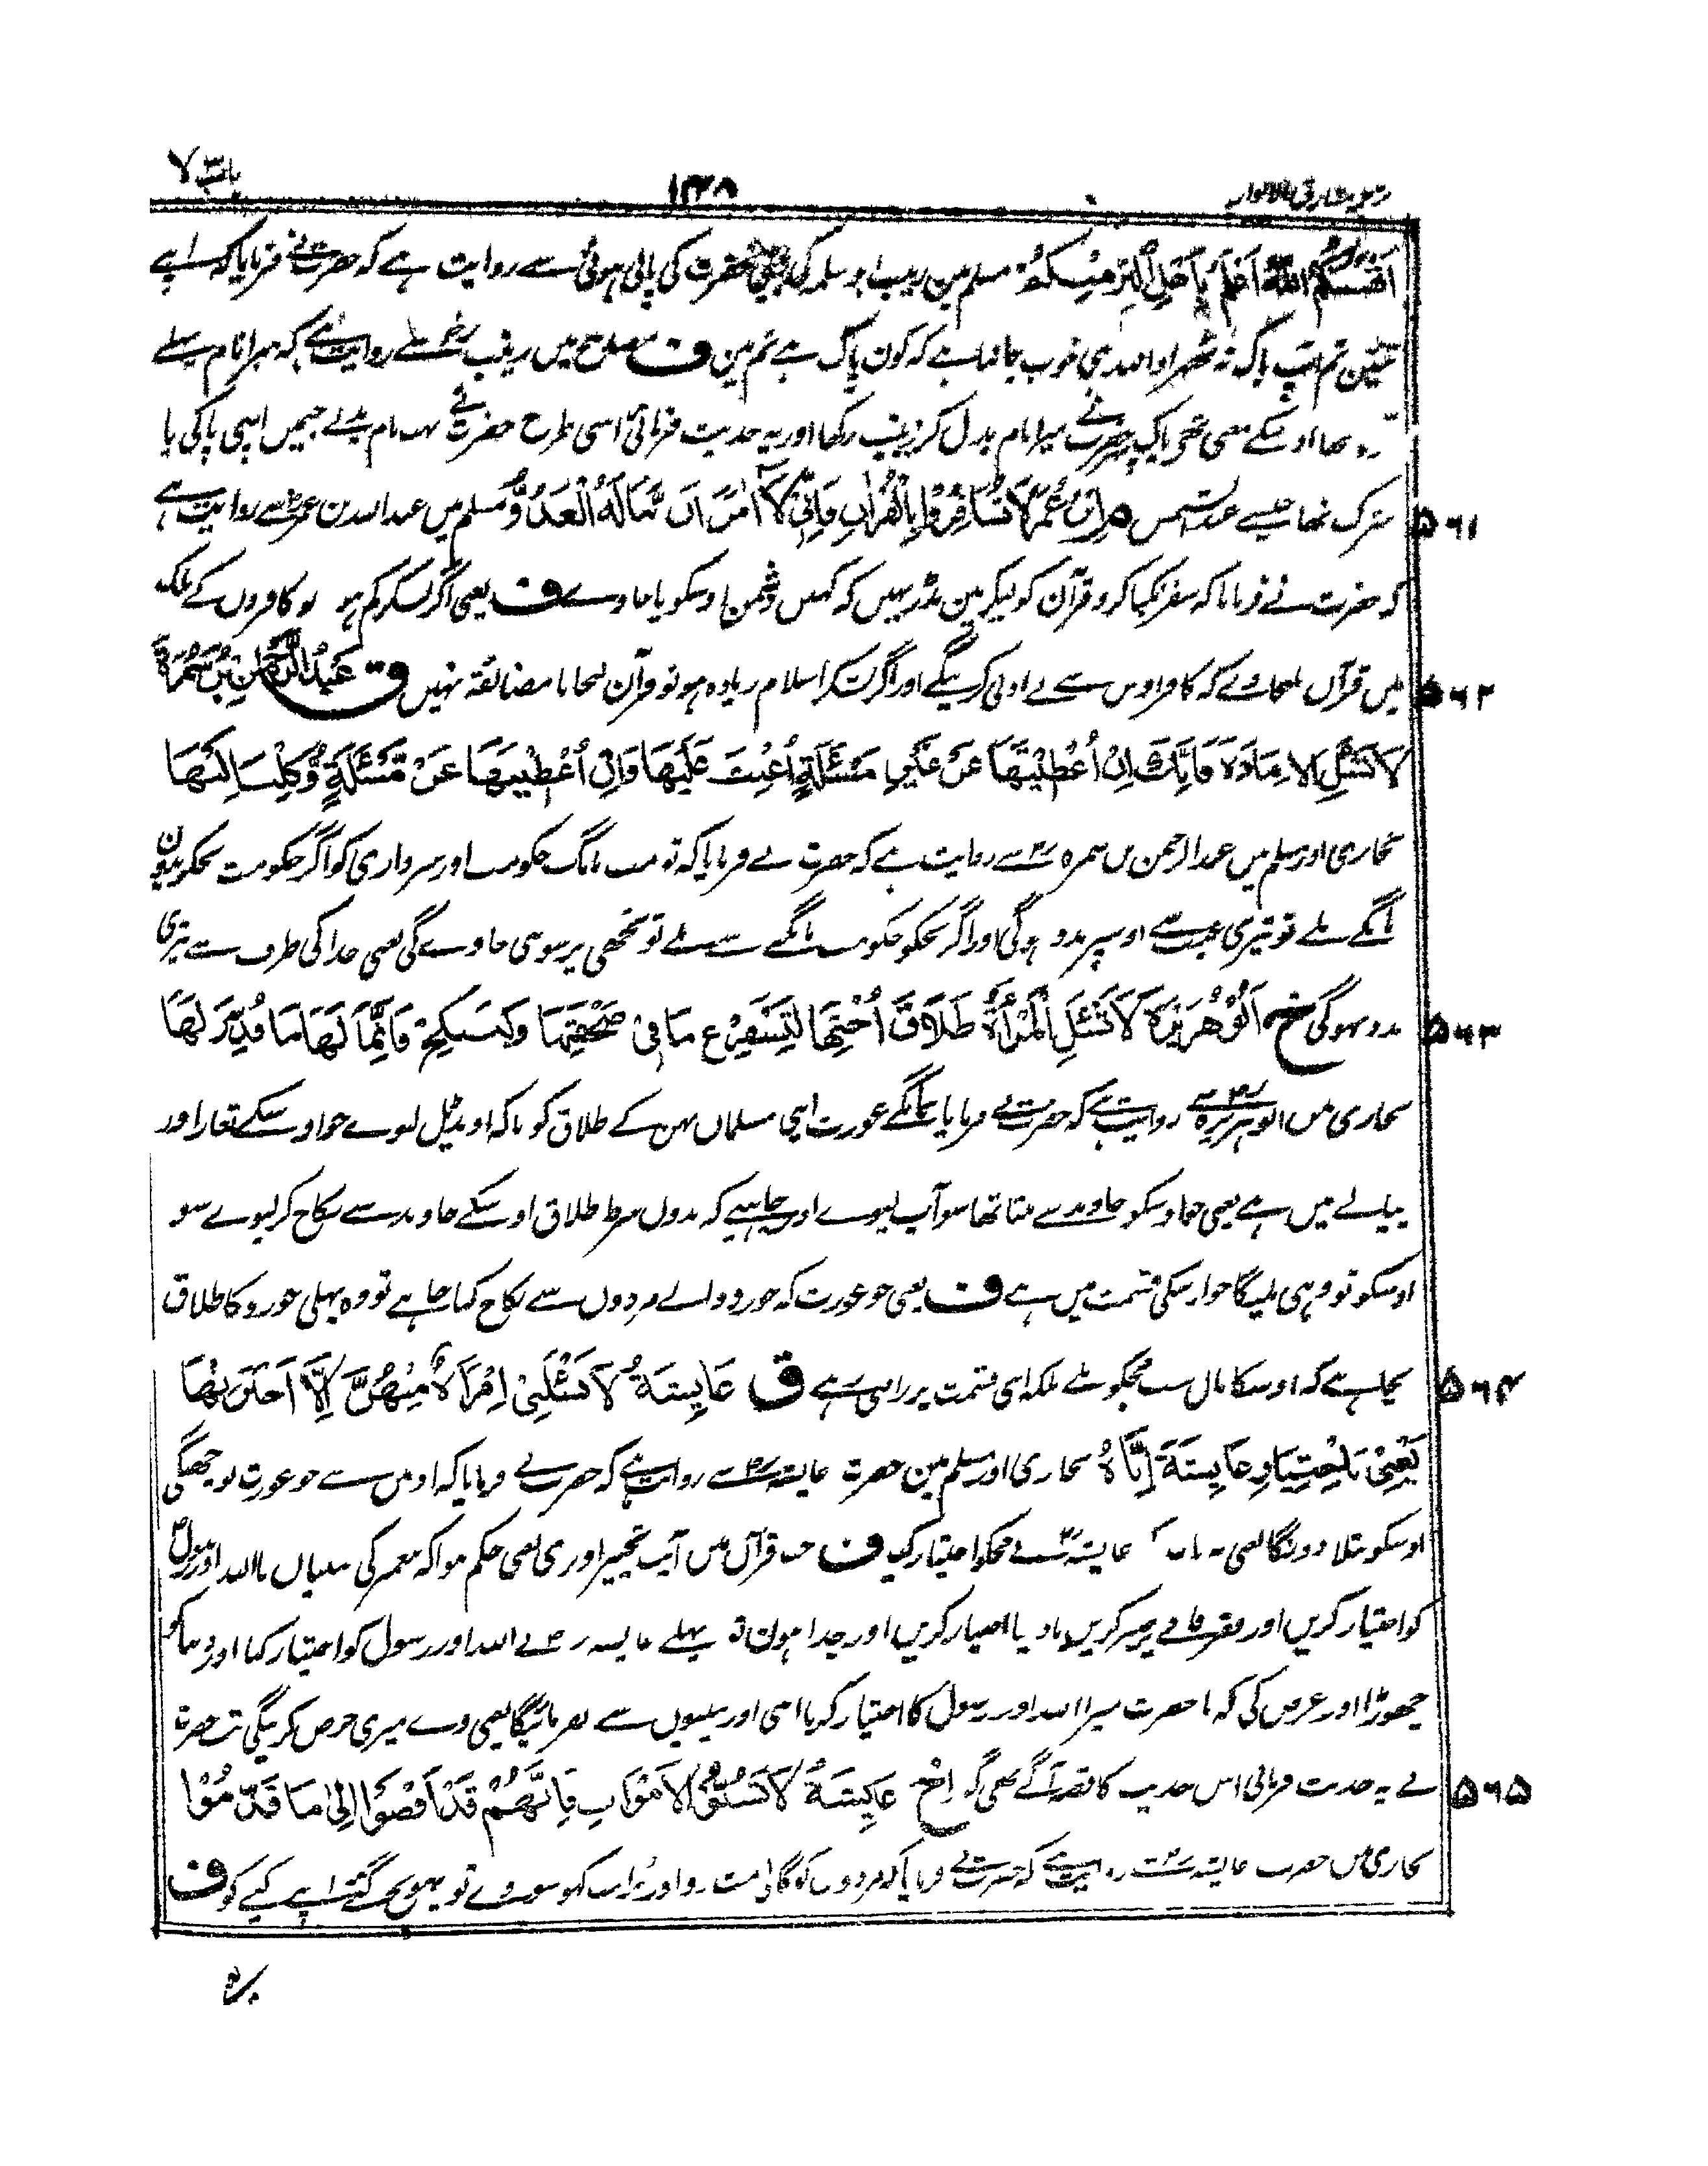 باب ٧
١٣٨
ترجمہ مشارق الانوار
اَنْفُسَكُمْ اَللّٰهُ اَعْلَمُ بِاَهْلِ الْبِرِّ مِنْكُمْ مسلم مین زینب ابو سلمہ کی بیٹی حضرت کی پالی ہوئی سے روایت ہے کہ حضرت نے فرمایا کہ اپنے
تئین تم آپ پاک نہ ٹھہراو اللہ ہی خوب جانتا ہے کہ کون پاک ہے تم مین ف مین زینب سے روایت ہے کہ میرا نام پہلے
برہ تھا اوسکے معنی تھی پاک پھر حضرت نے میرا نام بدل کر زینب رکھا اور یہ حدیث فرمائی اسی طرح حضرت نے بہت نام بدلے جسمیں اپنی پاکی یا
شرک تھا جیسے عبدالشمس م اِبْنُ عُمَرَ لَا تُسَافِرُوْا بِالْقُرْاٰنِ فَاِنِّيْ لَا اٰمَنُ اَنْ يَّنَالَهُ الْعَدُوُّ مسلم میں عبداللہ بن عمر سے روایت ہے ٥٦١
کہ حضرت نے فرمایا کہ سفر نکیا کرو قرآن کو لیکر مین نڈر نہیں کہ کہیں دشمن اوسکو پا جاوے ف یعنی اگر لشکر کم ہو تو کافروں کے ملک
میں قرآن نلیجاوے کہ کافر اوس سے بے ادبی کرینگے اور اگر لشکر اسلام زیادہ ہو تو قرآن لیجانا مضائقہ نہیں ق عَبْدُ الرَّحْمٰنِ بْنُ سَمُرَةَ ٥٦٢
لَا تَسْئَلِ الْاِمَارَةَ فَاِنَّكَ اِنْ اُعْطِيْتَهَا عَنْ غَيْرِ مَسْئَلَةٍ اُعِنْتَ عَلَيْهَا وَاِنْ اُعْطِيْتَهَا عَنْ مَّسْئَلَةٍ وُّكِلْتَ اِلَيْهَا
بخاری اور مسلم میں عبدالرحمن بن سمرہ سے روایت ہے کہ حضرت نے فرمایا کہ تو مت مانگ حکومت اور سرداری کو اگر حکومت تجکو بدون
مانگے ملے تو تیری غیب سے اوسپر مدد ہوگی اور اگر تجکو حکومت مانگنے سے ملے تو تجھی پر سونپی جاوے گی یعنی خدا کی طرف سے تیری
مدد نہوگی خ اَبُوْ هُرَيْرَةَ لَا تَسْئَلِ الْمَرْاَةُ طَلَاقَ اُخْتِهَا لِتَسْتَفْرِغَ مَا فِيْ صَحْفَتِهَا وَلْتَنْكِحْ فَاِنَّمَا لَهَا مَا قُدِّرَ لَهَا ٥٦٣
بخاری میں ابو ہریرہ سے روایت ہے کہ حضرت نے فرمایا نمانگے عورت اپنی مسلمان بہن کے طلاق کو تاکہ اونڈیل لیوے جو اوسکے اور
پیالے میں ہے یعنی جو اوسکو خاوند سے ملتا تھا سو آپ لیوے اور چاہیے کہ بدون شرط طلاق اوسکے خاوند سے نکاح کر لیوے سو
اوسکو تو وہی ملیگا جو اسکی قسمت میں ہے ف یعنی جو عورت کہ جورو والے مردوں سے نکاح کیا چاہے تو وہ پہلی جورو کا طلاق
نچاہے کہ اوسکا مال سب مجکو ملے بلکہ اپنی قسمت پر راضی رہے ق عَايِشَةُ لَا تَسْئَلُنِيْ اِمْرَاَةٌ مِنْهُنَّ اِلَّا اَخْبَرْتُهَا ٥٦٤
يَعْنِيْ بِاخْتِيَارِ عَايِشَةَ اِيَّاهُ بخاری اور مسلم مین حضرت عایشہ سے روایت ہے کہ حضرت نے فرمایا کہ اونمیں سے جو عورت پوچھیگی
اوسکو بتلا دونگا یعنی یہ بات کہ عایشہ نے مجکو اختیار کیا ف جب قرآن میں آیت تخییر اوتری یعنی حکم ہوا کہ پیغمبر کی بیبیاں یا اللہ اور رسول
کو اختیار کریں اور فقر فاقے پر صبر کریں یا دنیا اختیار کریں اور جدا ہوں تو پہلے عایشہ نے اللہ اور رسول کو اختیار کیا اور دنیا کو
چھوڑا اور عرض کی کہ یا حضرت میرا اللہ اور رسول کا اختیار کرنا اپنی اور بیبیوں سے نفرمائیگا یعنی وے میری حرص کرینگی تب حضرت
نے یہ حدیث فرمائی اس حدیث کا قصہ آگے بھی گذرا خ عَايِشَةُ لَا تَسُبُّوا الْاَمْوَاتَ فَاِنَّهُمْ قَدْ اَفْضَوْا اِلٰى مَا قَدَّمُوْا ٥٦٥
بخاری میں حضرت عایشہ سے روایت ہے کہ حضرت نے فرمایا کہ مردوں کو گالی مت دو اور برا مت کہو سو وے تو پہونچ گئے اپنے کیے کو ف